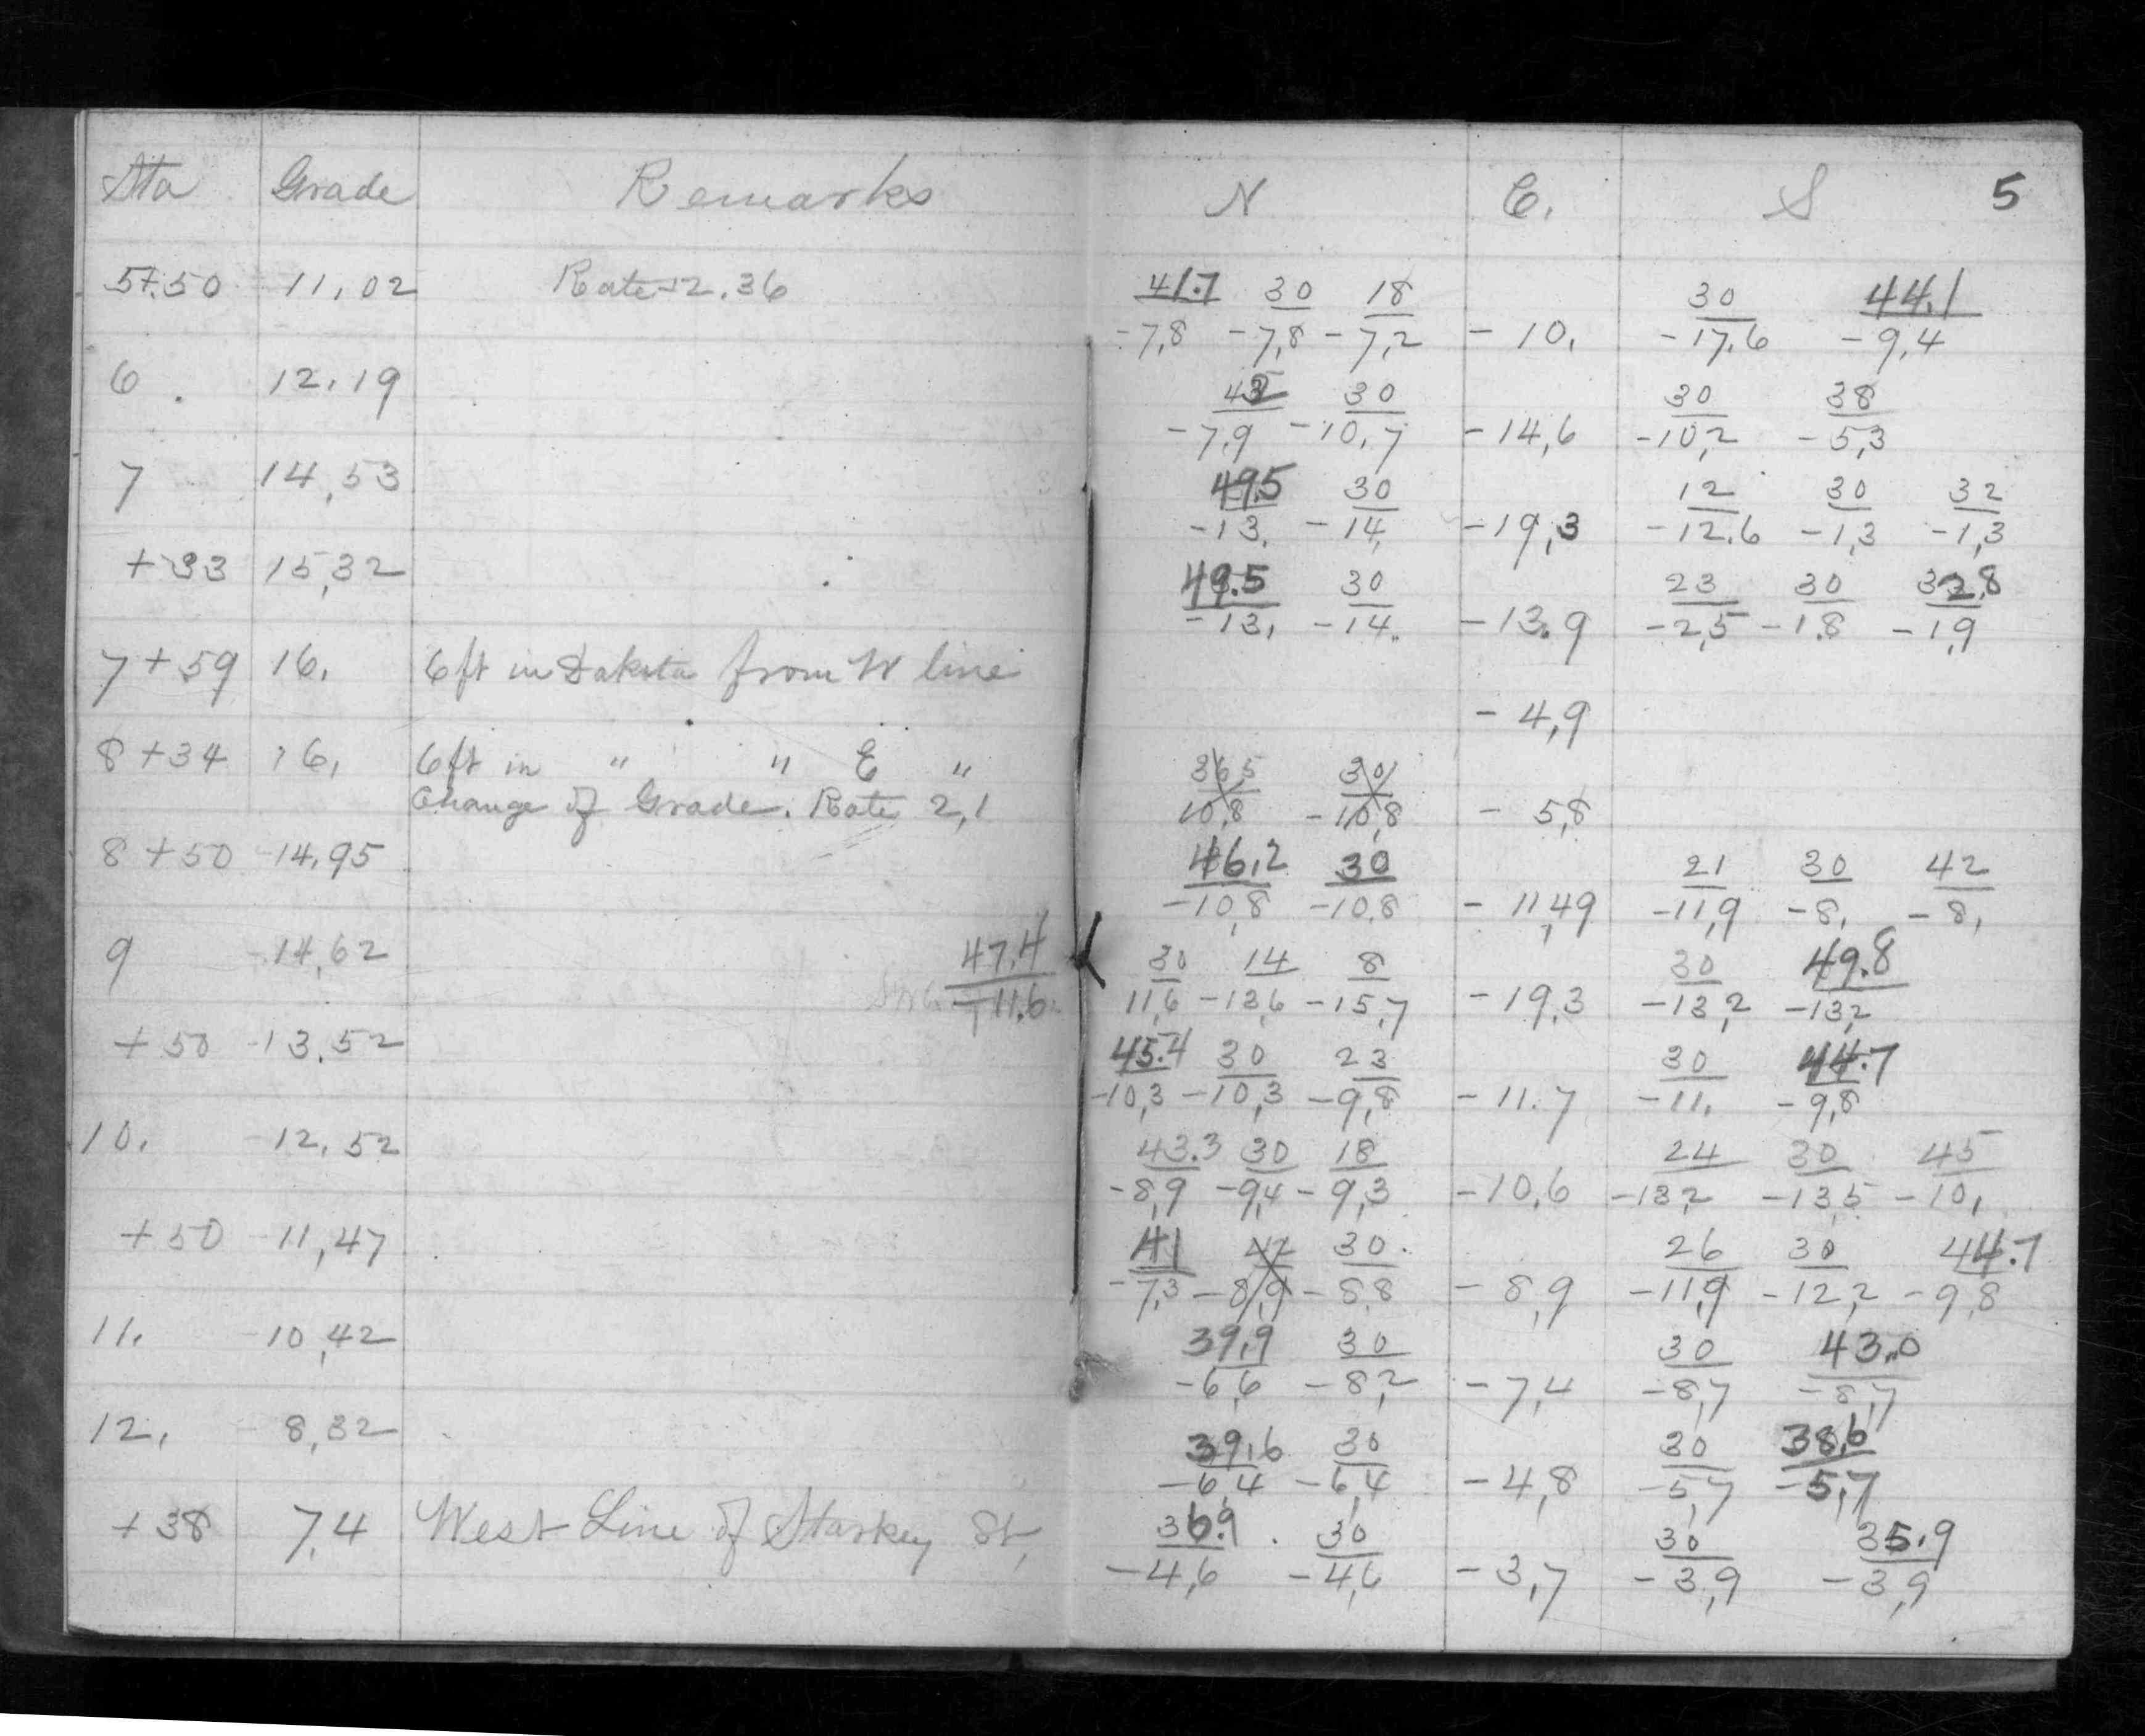 Sta Grade Remarks N C. S 5
5+50 11,02 Rate 2.36 41.7 30 18 30 44.1
-7,8 -7,8 -7,2 -10, -17,6 -9,4
6. 12.19 30 30 38
-7,9 -10,7 -14,6 -10,2 -5,3
7 14,53 49.5 30 12 30 32
-13, -14, -19,3 -12,6 -1,3 -1,3
+33 15,32 49.5 30 23 30 32,8
-13, -14. -13.9 -2,5 -1.8 -1,9
7+59 16. 6ft in Dakota from W line
-4,9
8+34 16, 6ft in " " E " 36,5 30
Change of Grade. Rate 2,1 10,8 -10,8 -5,8
8+50 14.95 46,2 30 21 30 42
-10,8 -10.8 -11,49 -11,9 -8, -8,
9 14,62 47.4 30 14 8 30 49.8
-11.6 11,6 -13,6 -15,7 -19,3 -13,2 -13,2
+50 13.52 45.4 30 23 30 44.7
-10,3 -10,3 -9,8 -11.7 -11, -9,8
10. 12.52 43.3 30 18 24 30 45
-8,9 -9,4 -9,3 -10,6 -13,2 -13,5 -10,
+50 11,47 41 42 30. 26 30 44.7
-7,3 -8,9 -8,8 -8,9 -11,9 -12,2 -9,8
11. 10,42 39,9 30 30 43.0
-6,6 -8,2 -7,4 -8,7 -8,7
12, 8,32 39,6 30 30 38,6
-6,4 -6,4 -4,8 -5,7 -5,7
+38 7.4 West Line of Starkey St, 36.9 30 30 35.9
-4,6 -4,6 -3,7 -3,9 -3,9